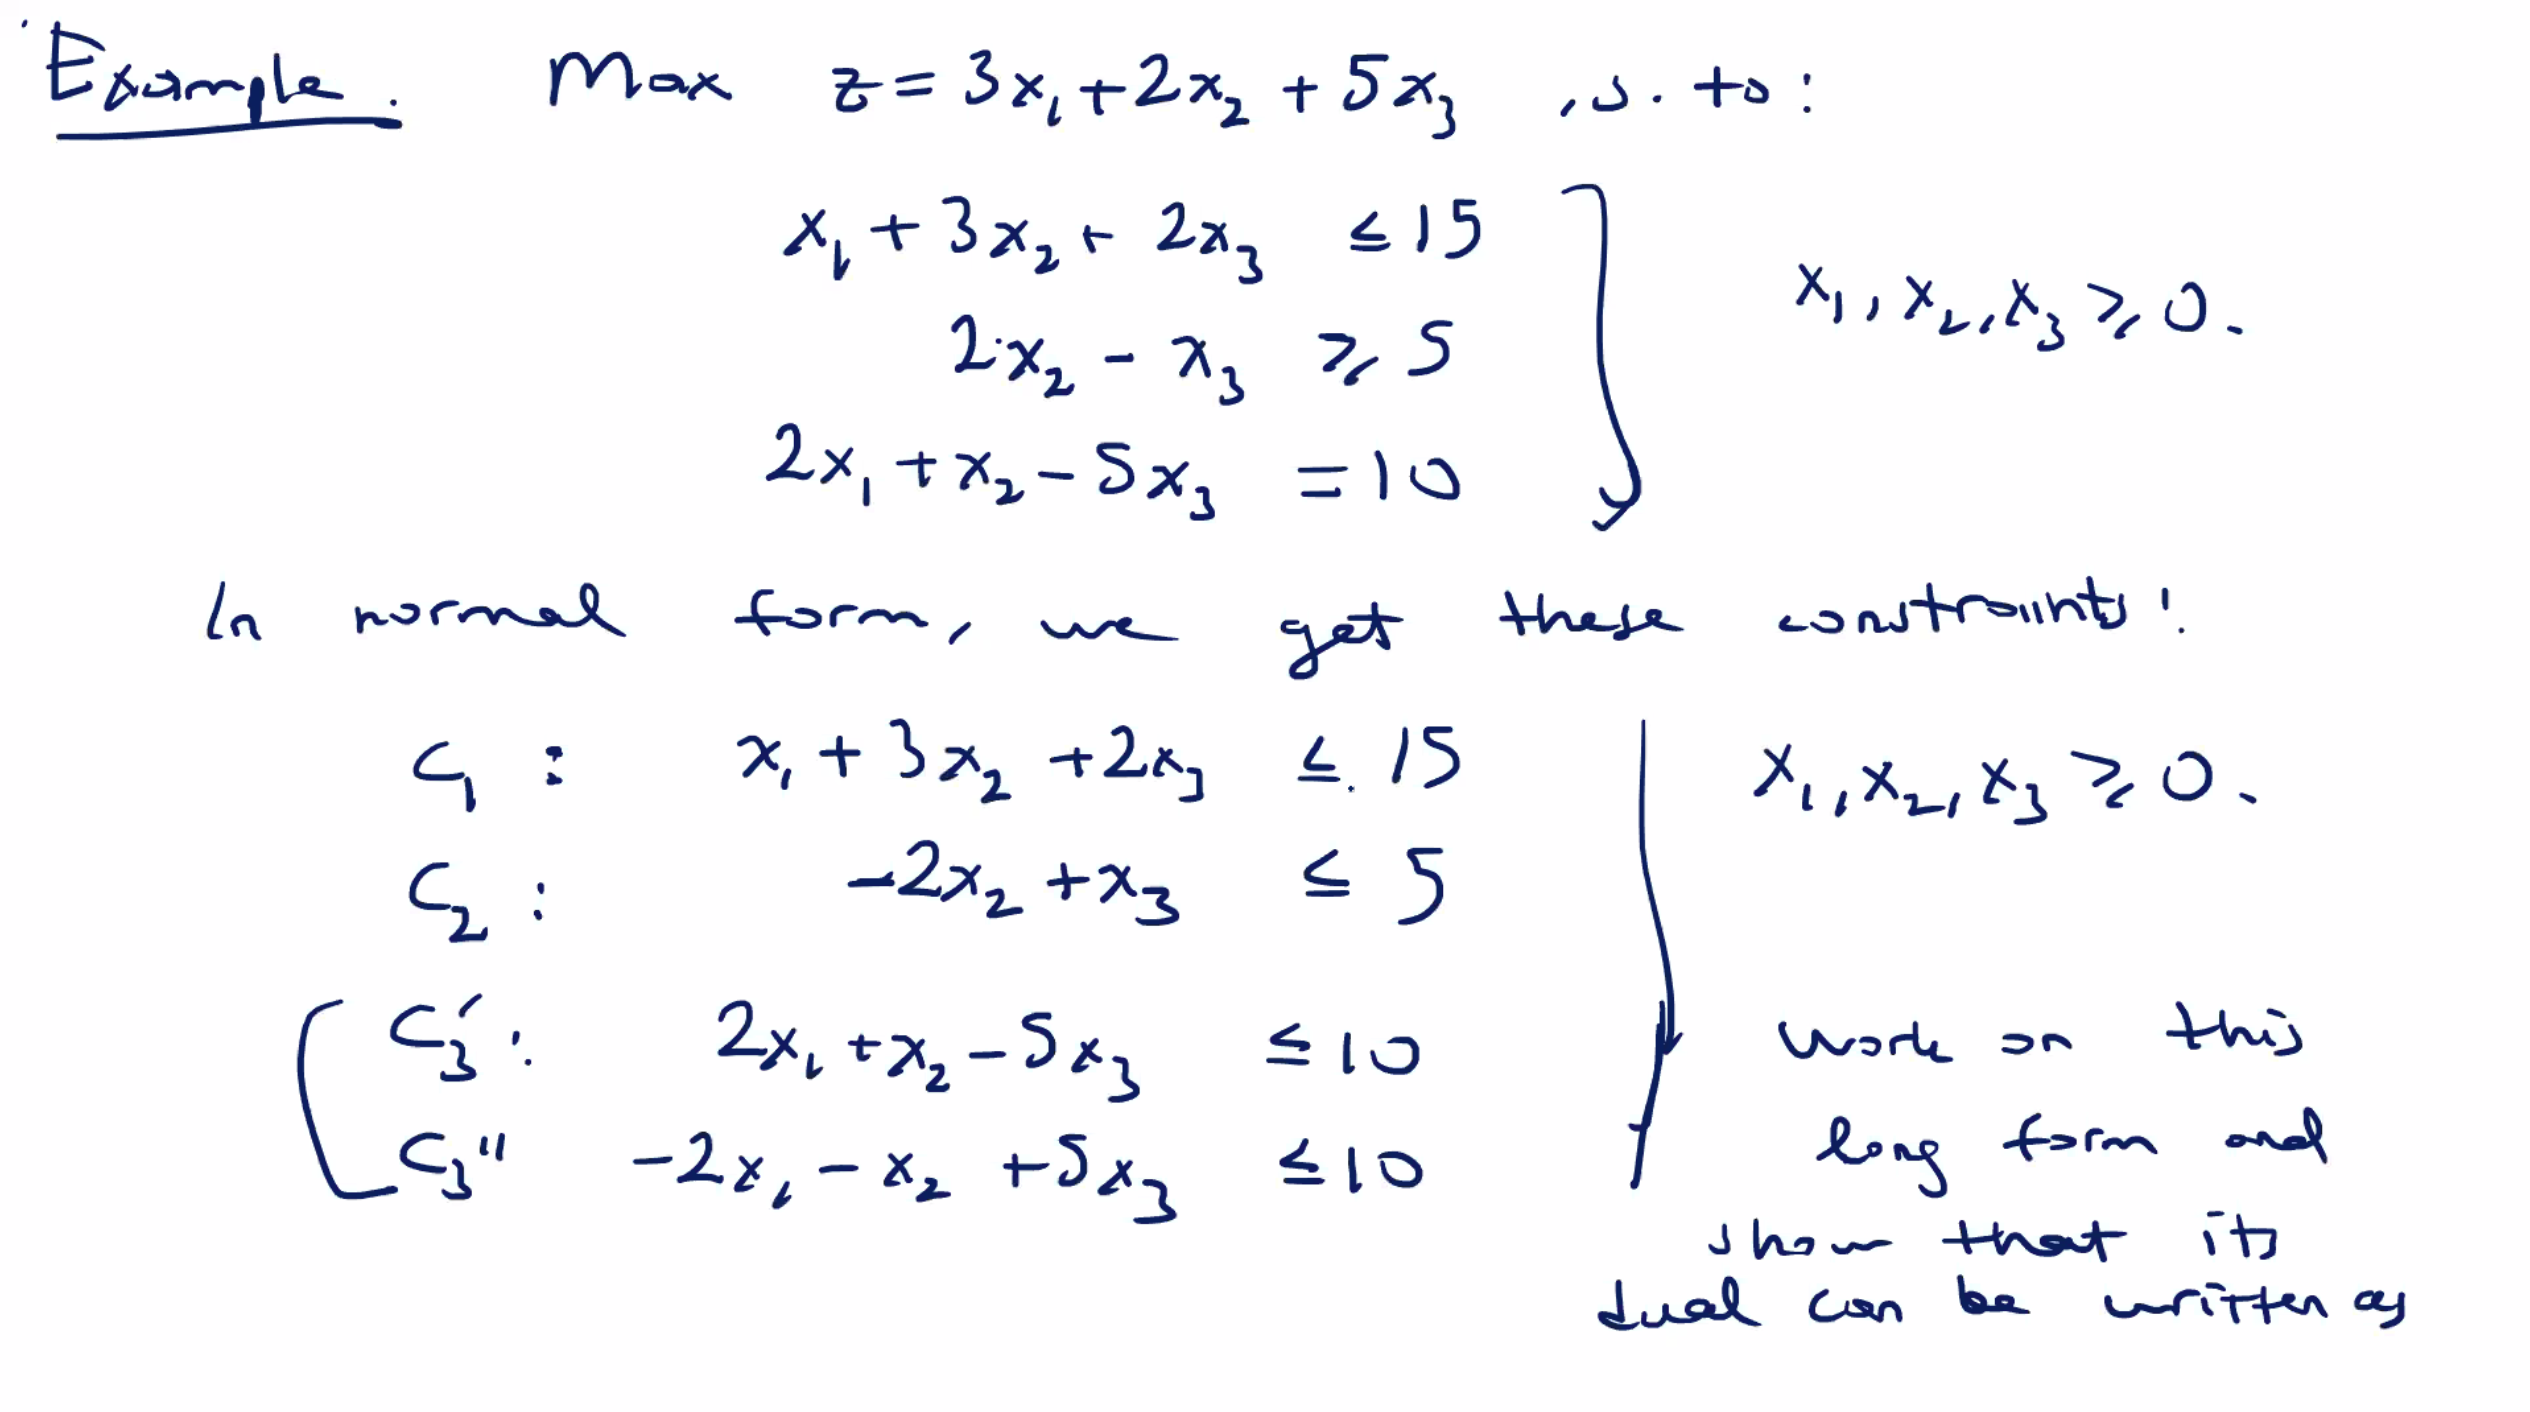 Example. Max z = 3x₁ + 2x₂ + 5x₃ , s. to:
x₁ + 3x₂ + 2x₃ ≤ 15
2x₂ - x₃ ≥ 5
x₁, x₂, x₃ ≥ 0.
2x₁ + x₂ - 5x₃ = 10
In normal form, we get these constraints:
C₁ : x₁ + 3x₂ + 2x₃ ≤ 15
x₁, x₂, x₃ ≥ 0.
C₂ : -2x₂ + x₃ ≤ 5
C₃' : 2x₁ + x₂ - 5x₃ ≤ 10
C₃'' -2x₁ - x₂ + 5x₃ ≤ 10
work on this
long form and
show that its
dual can be written as